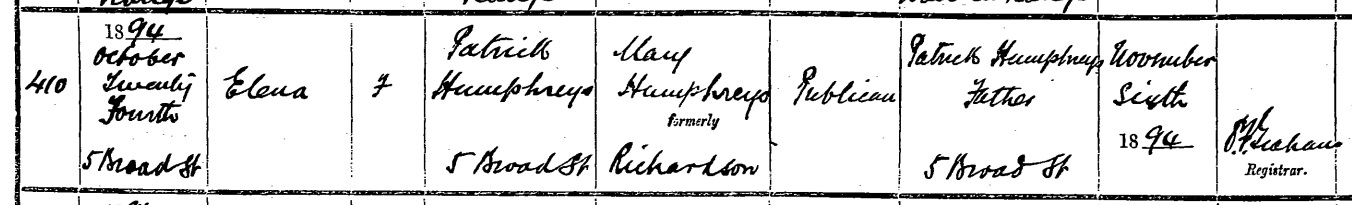 410
1894
October
Twenty
Fourth
5 Broad St
Elena
F
Patrick
Humphreys
5 Broad St
Mary
Humphreys
formerly
Richardson
Publican
Patrick Humphreys
Father
5 Broad St
November
Sixth
1894
Graham
Registrar.